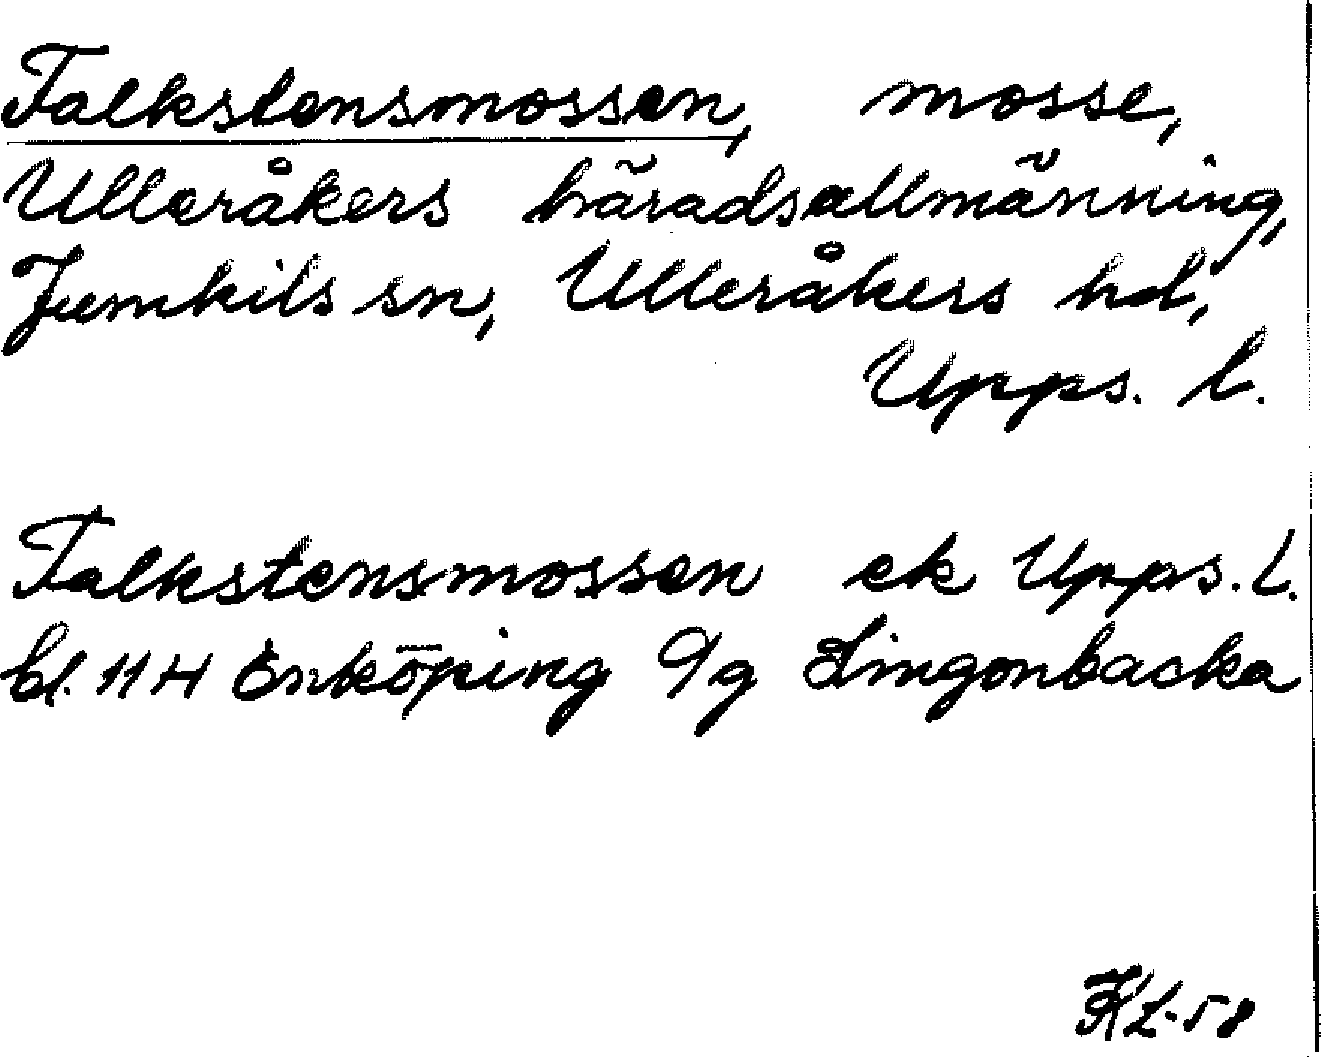 Talkstensmossen, mosse,
Ulleråkers häradsallmänning,
Jumkils sn, Ulleråkers hd,
Upps. l.
Talkstensmossen ek Upps. l.
bl. 114 Enköping 9g Lingonbacka
KL-58